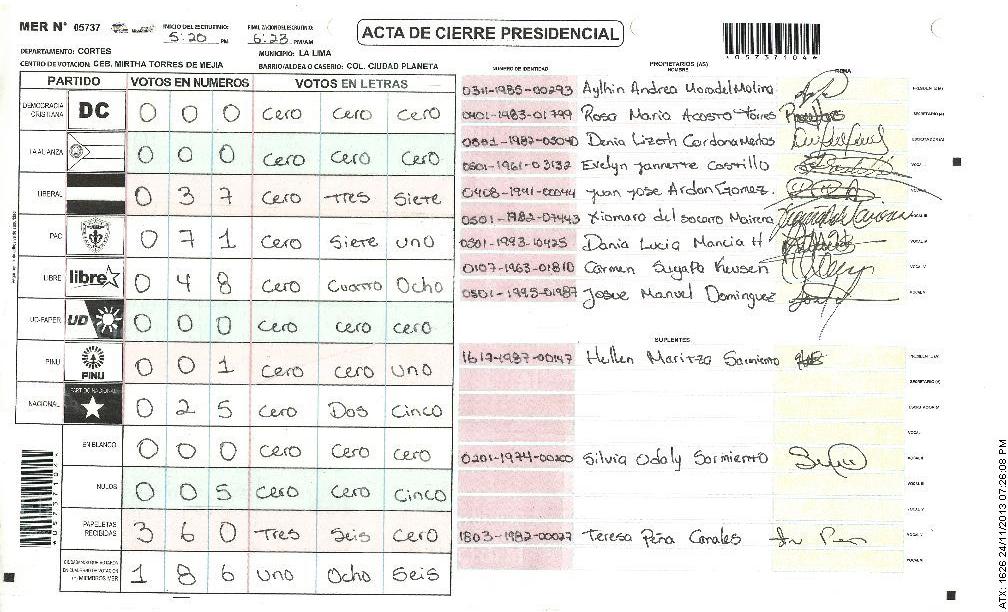 MER N° 05737
INICIO DEL ESCRUTINIO: 5:20 PM
FINALIZACION DEL ESCRUTINIO: 6:23 PM/AM
ACTA DE CIERRE PRESIDENCIAL
DEPARTAMENTO: CORTES
MUNICIPIO: LA LIMA
CENTRO DE VOTACION: CEB. MIRTHA TORRES DE MEJIA
BARRIO/ALDEA O CASERIO: COL. CIUDAD PLANETA
057371046
PARTIDO VOTOS EN NUMEROS VOTOS EN LETRAS
DEMOCRACIA CRISTIANA DC 0 0 0 Cero Cero Cero
LA ALIANZA 0 0 0 Cero Cero Cero
LIBERAL 0 3 7 Cero Tres Siete
PAC 0 7 1 Cero Siete uno
LIBRE libre 0 4 8 Cero Cuatro Ocho
UD-FAPER UD 0 0 0 Cero Cero Cero
PINU PINU 0 0 1 Cero Cero uno
NACIONAL PARTIDO NACIONAL 0 2 5 Cero Dos Cinco
EN BLANCO 0 0 0 Cero Cero Cero
NULOS 0 0 5 Cero Cero Cinco
PAPELETAS RECIBIDAS 3 6 0 Tres Seis Cero
1 8 6 uno Ocho Seis
NUMERO DE IDENTIDAD PROPIETARIOS (AS) NOMBRE FIRMA
0311-1985-00293 Aylhin Andrea
0401-1983-01799 Rosa Maria Acosta Torres
Denia Lizeth
0501-1961-03132 Evelyn Jannette Castrillo
0408-1941-00044 Juan Jose Ardon Gomez.
0501-1982-07443 Xiomara del socorro Mairena
0501-1993-10425 Dania Lucia Mancia H
0107-1963-01810 Carmen Suyapa
0501-1995-01987 Josue Manuel Dominguez
SUPLENTES
1619-1987-00147 Hellen Maritza Sarmiento
0201-1974-00200 Silvia Odaly Sarmiento
1803-1982-00027 Teresa Peña Canales
ATX: 1626 24/11/2013 07:26:08 PM